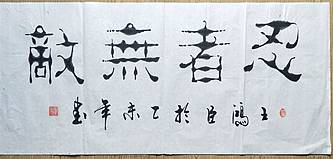 忍者無敵
王鴻臣於乙未年書